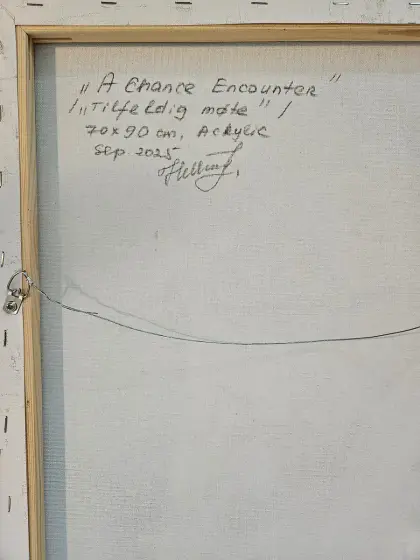 „A Chance Encounter"
/„Tilfeldig møte"/
70x90 cm, Acrylic
Sep. 2025